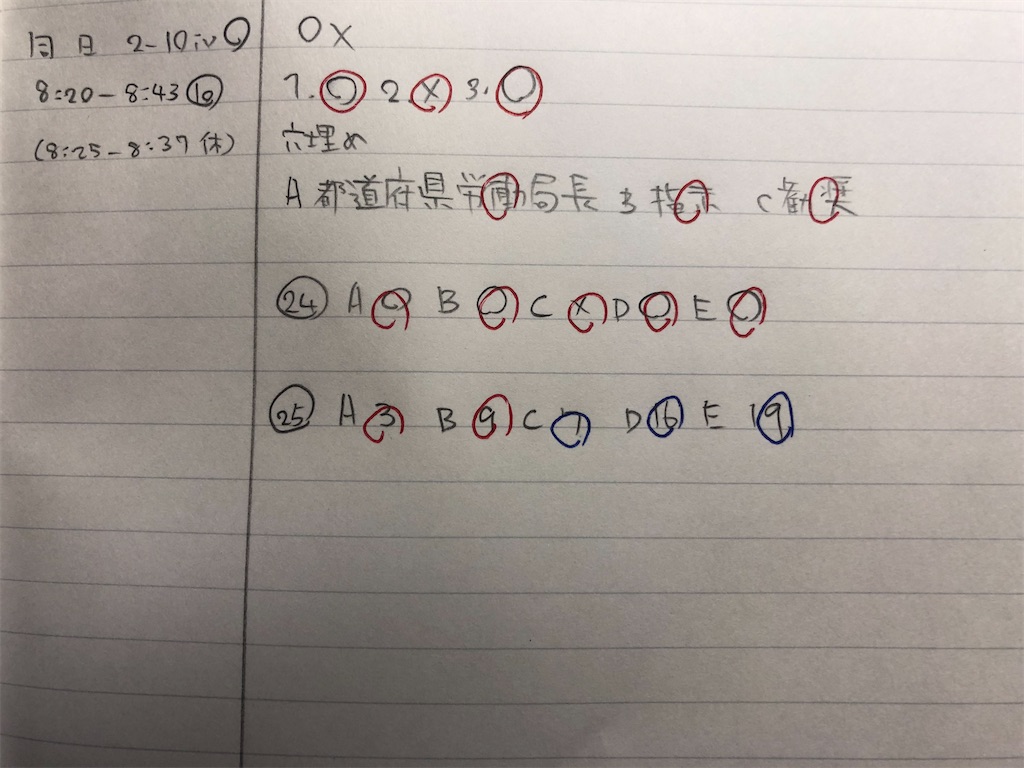 同日 2-10iv○
8:20-8:43 ⑩
(8:25-8:37 休)
○×
1.○ 2.× 3.○
穴埋め
A 都道府県労働局長 B 指示 C 勧奨
㉔ A ○ B ○ C × D ○ E ○
㉕ A 3 B 9 C 1 D 16 E 19